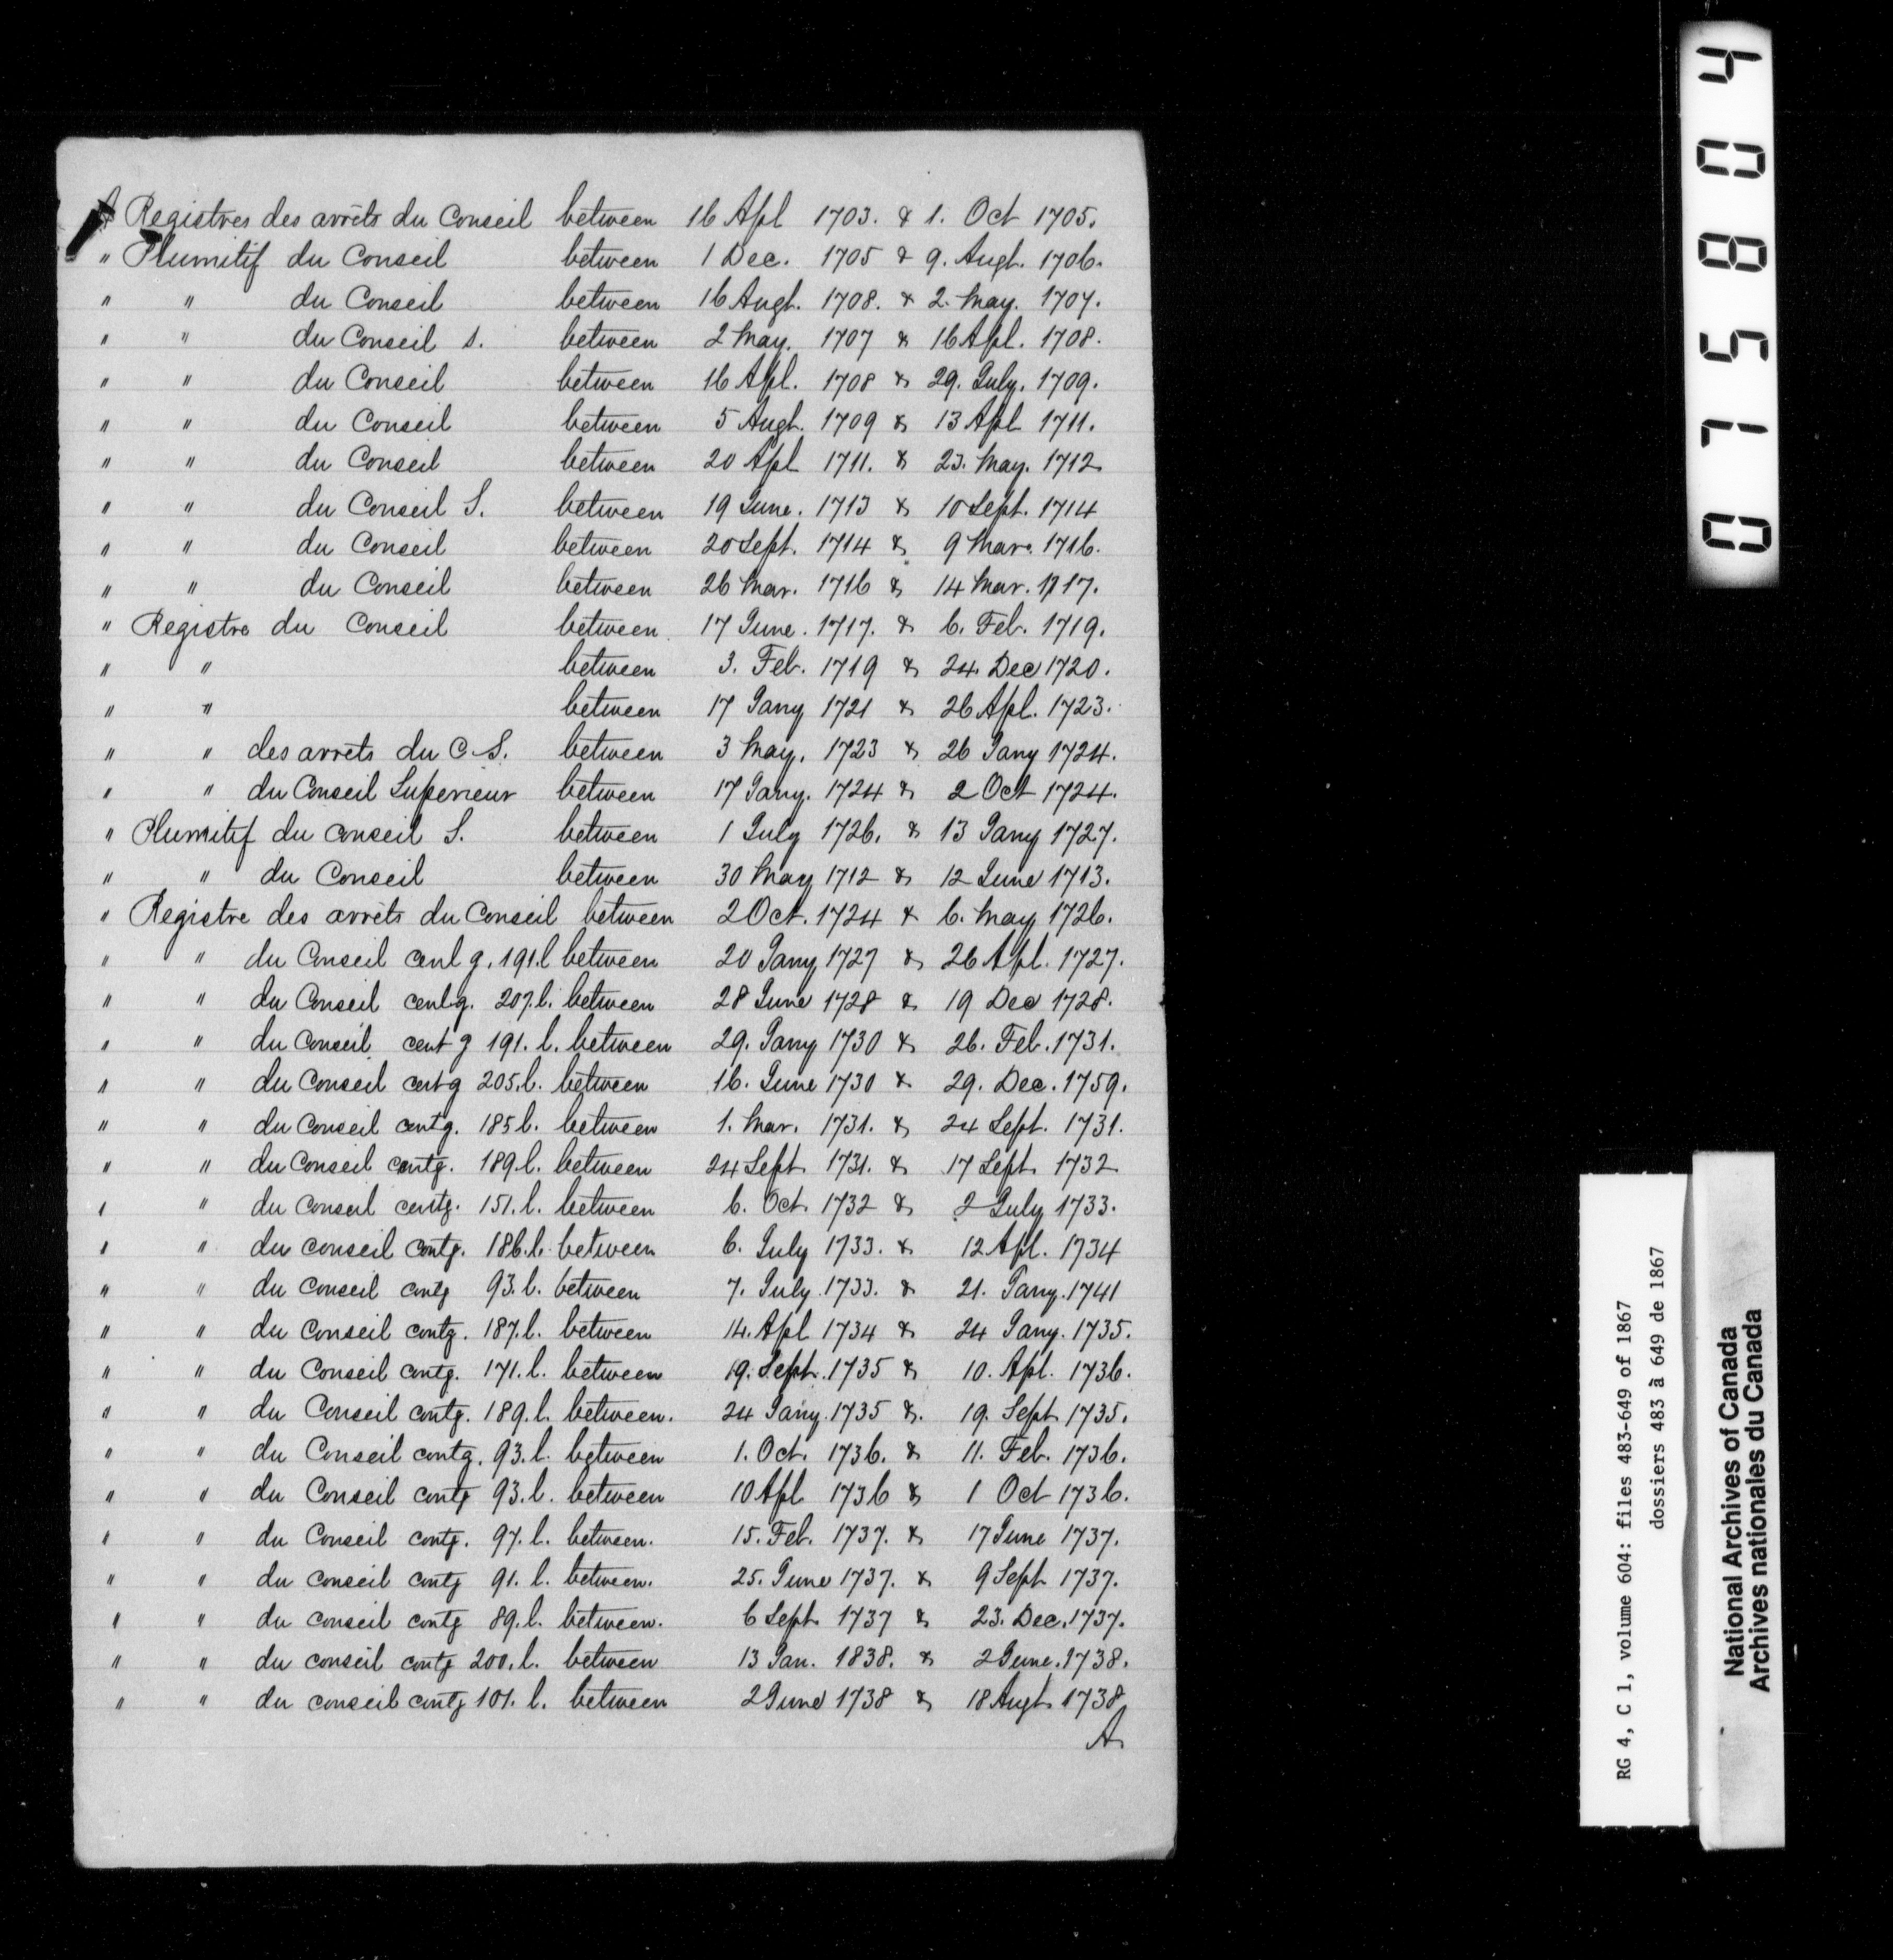 A Registres des arrêts du Conseil between 16 Apl 1703. & 1. Oct 1705.
" Plumitif du Conseil between 1 Dec. 1705 & 9. Augt. 1706.
" " du Conseil between 16 Augt. 1708. & 2. May. 1707.
" " du Conseil s. between 2 May. 1707 & 16 Apl. 1708.
" " du Conseil between 16 Apl. 1708 & 29. July. 1709.
" " du Conseil between 5 Augt. 1709 & 13 Apl 1711.
" " du Conseil between 20 Apl 1711. & 23. May. 1712
" " du Conseil S. between 19 June. 1713 & 10 Sept. 1714
" " du Conseil between 20 Sept. 1714 & 9 Mar. 1716.
" " du Conseil between 26 Mar. 1716 & 14 Mar. 1717.
" Registre du Conseil between 17 June. 1717. & 6. Feb. 1719.
" " between 3. Feb. 1719 & 24. Dec 1720.
" " between 17 Jany 1721 & 26 Apl. 1723.
" " des arrêts du C. S. between 3 May. 1723 & 26 Jany 1724.
" " du Conseil Superieur between 17 Jany. 1724 & 2 Oct 1724.
" Plumitif du conseil S. between 1 July 1726. & 13 Jany 1727.
" " du Conseil between 30 May 1712 & 12 June 1713.
" Registre des arrêts du Conseil between 2 Oct. 1724 & 6. May 1726.
" " du Conseil centg. 191. l between 20 Jany 1727 & 26 Apl. 1727.
" " du Conseil centg. 207. l. between 28 June 1728 & 19 Dec 1728.
" " du Conseil centg 191. l. between 29. Jany 1730 & 26. Feb. 1731.
" " du Conseil centg 205. l. between 16. June 1730 & 29. Dec. 1759.
" " du Conseil contg. 185 l. between 1. Mar. 1731. & 24 Sept. 1731.
" " du Conseil contg. 189. l. between 24 Sept 1731. & 17 Sept 1732
" " du Conseil contg. 151. l. between 6. Oct. 1732 & 2 July 1733.
" " du conseil contg. 186. l. between 6. July 1733. & 12 Apl. 1734
" " du Conseil contg 93. l. between 7. July 1733. & 21. Jany. 1741
" " du Conseil contg. 187. l. between 14. Apl 1734 & 24 Jany. 1735.
" " du Conseil contg. 171. l. between 19. Sept. 1735 & 10. Apl. 1736.
" " du Conseil contg. 189. l. between. 24 Jany. 1735 &. 19. Sept 1735.
" " du Conseil contg. 93. l. between 1. Oct. 1736. & 11. Feb. 1736.
" " du Conseil contg 93. l. between 10 Apl 1736 & 1 Oct 1736.
" " du Conseil contg. 97. l. between. 15. Feb. 1737. & 17 June 1737.
" " du Conseil contg 91. l. between. 25. June 1737. & 9 Sept 1737.
" " du conseil contg 89. l. between. 6 Sept 1737 & 23. Dec. 1737.
" " du conseil contg 200. l. between 13 Jan. 1838. & 2 June. 1738.
" " du conseil contg 101. l. between 2 June 1738 & 18 Augt 1738
A
071504
RG 4, C 1, volume 604: files 483-649 of 1867
dossiers 483 à 649 de 1867
National Archives of Canada
Archives nationales du Canada